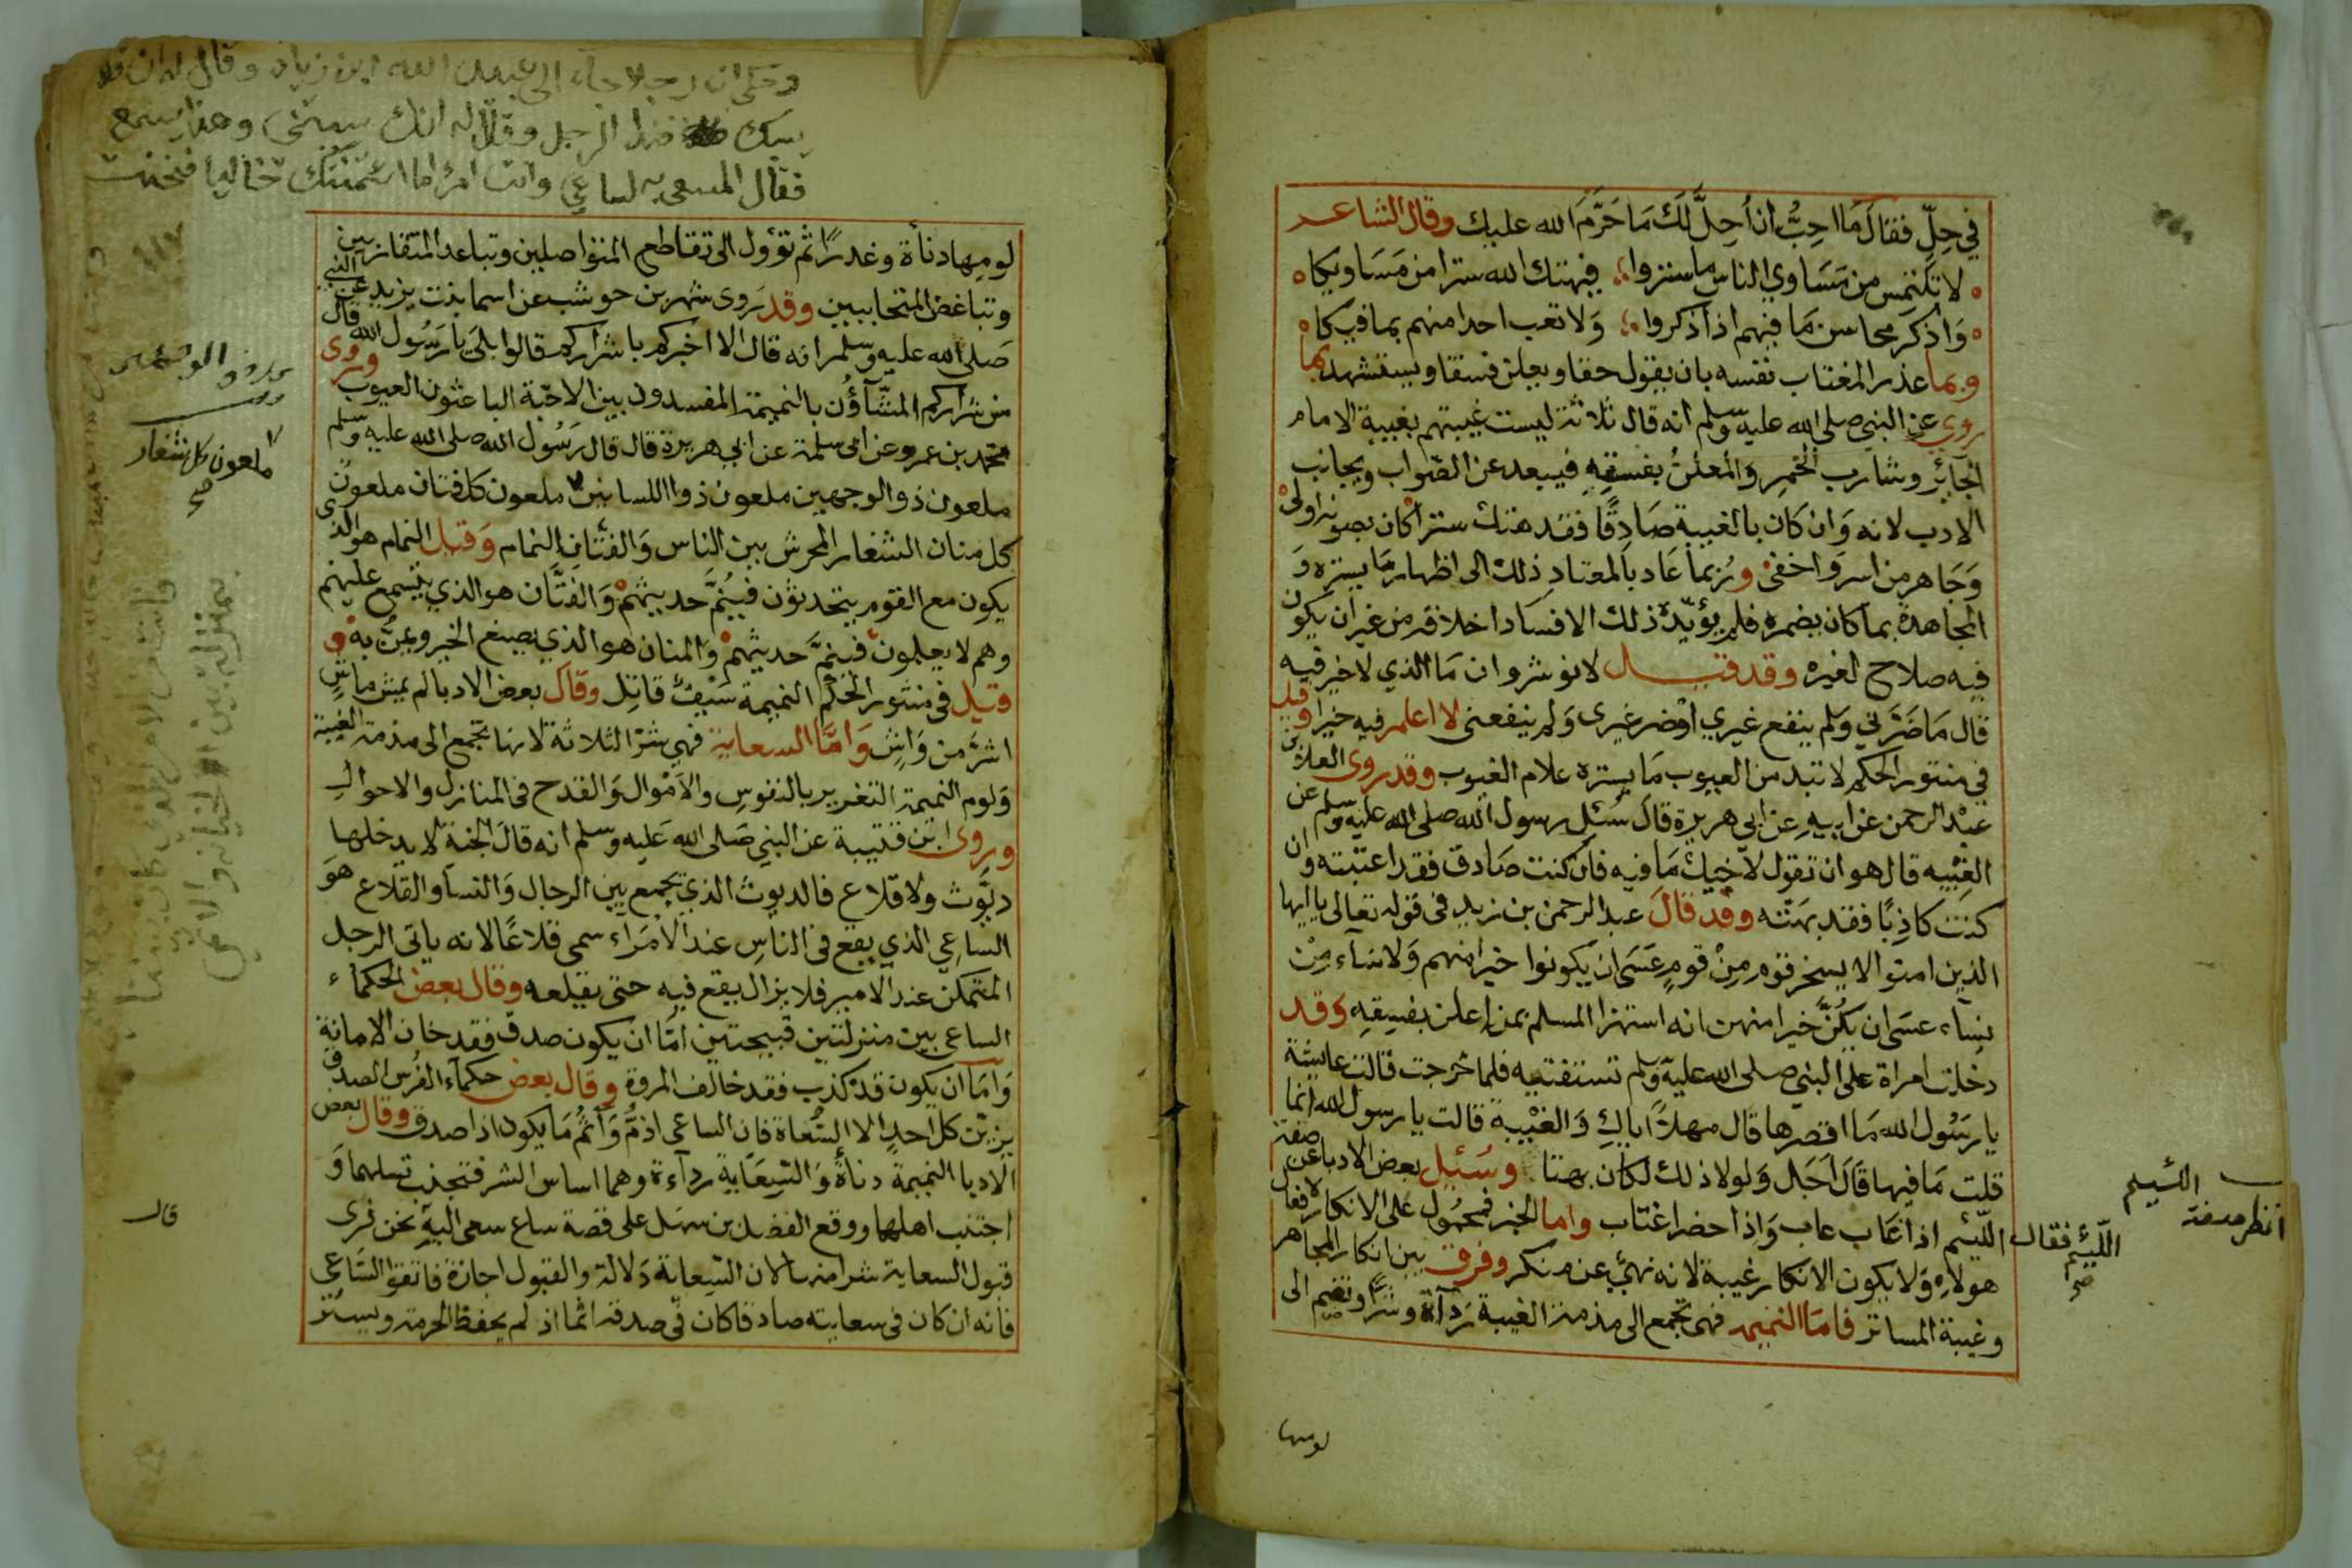 في حِلّ فقال مَا احِبُّ أن اُحِلَّ لَكَ مَا حَرَّمَ الله عليك وقال الشاعر
لا تلتمس من مَسَاوي الناس ما ستروا فيهتك الله سترا من مَسَاويكا
وَاذكر محاسن مَا فيهم اذا ذكروا وَلا تعب احدا منهم بما فيكا
وبما عذر المغتاب نفسه بان يقول حقا ويعلن فسقا ويستشهد بما
روي عن النبي صلى الله عليه وسلم انه قال ثلاثة ليست غيبتهم بغيبة الامام
الجآئر وشارب الخمرِ والمعلنُ بفسقِهِ فيبعد عن الصّواب ويجانب
الادب لانه وَان كان بالغيبة صَادِقًا فقد هتك سترا كان بصونه اولى
وَجَاهر من اسر وَاخفى ورُبما عَاد بالمعتاد ذلك الى اظهار مَا يستره وَ
المجاهدة بما كان يضمره فلم يؤيّده ذلك الا فساد اخلاقه من غير ان يكون
فيه صلاح لغيره وقد قيل لانوشروان مَا الذي لا خير فيه
قال مَا ضَرَّني وَلم ينفع غيري اوْ ضر غيرى وَلم ينفعنى لا اعلم فيه خيرا وقيل
في منثور الحكم لا تبد من العيوب مَا يستره علام الغيوب وقد روى العلاء بن
عبْد الرحمن عن ابيهِ عن ابي هريرة قال سُئل رسول الله صلى الله عليه وسلم عن
الغِيْبه قال هو ان تقول لاخيك مَا فيه فان كنت صَادق فقد اغتبته وان
كنت كاذِبًا فقد بهتّه وقد قالَ عبد الرحمن بن زيد في قوله تعالى يا ايها
الذين امنوا لا يسخر قوم مِنْ قومٍ عَسَى ان يكونوا خيرا منهم وَلا نساء مِنْ
نِساء عسى ان يكُنَّ خيرا منهن انه استهزا المسلم بمن اعلن بفسقِهِ وقد
دخلت امراة على النبي صلى الله عليه وسلم تستفتيه فلما خرجت قالت عايشة
يا رسُول الله مَا اقصرها قال مهلاً اياكِ وَالغيْبة قالت يا رسول الله انما
قلت مَا فيها قَال اَجَل وَلولا ذلك لكان بهتا وسُئِل بعض الادبا عن صفة
اللئيم اذا غاب عاب وَاذا حضر اغتاب واما الخبر فمحمُول على الانكار لافعال
هولاءِ وَلا يكون الانكار غيبة لانه نهيٌ عن منكر وفرق بين انكار المجاهر
وغيبة المساتر فامَا النميمه فهى تجمع الى مذمة الغيبة رَدآءة وشرًّا وتضم الى
اللئيم
اللّئيم فقال
صح
لومها
وحكي ان رجلا جاء الى عبيد الله ابن زياد وقال له ان فلا
يسبك هذا الرجل وقال له انك سببتني وهذا يسمع
فقال المسعى به لساعي وانت امرؤ اما ائتمنتك خاليا فخنت
لومِها دنأة وغدرًا ثم تؤول الى تقاطع المتواصلين وتباعد المتقاربين
وتباغض المتحاببين وقد رَوى شهر بن حوشب عن اسما بنت يزيد عن النبي
صَلى الله عليه وسلم انه قال الا اخبركم باشراركم قالوا بلَى يا رَسُول الله قال
من شراركم المشّآؤُن بالنميمة المفسدون بين الاحبّة الباغون العيوب وروى
محمد بن عمرو عن ابى سلمة عن ابي هريرة قال قال رَسُول الله صلى الله عليه وسلم
ملعون ذو الوجهين ملعون ذوا اللسانين ملعون كل فتان ملعون
كل منان الشغار المحرش بين الناس وَالفتّان النمام وَقيل النمام هو الذى
يكون مع القوم يتحدثون فيَنُمَّ حديثهمْ وَالفتَّان هو الذي يتسمع عليهم
وهم لا يعلمون فينمَّ حديثهمْ وَالمنان هو الذي يصنع الخير ويمُنُّ به و
قيل في منثور الحكم النميمة سَيْفٌ قاتِل وقال بعض الادبا لم يمش ماشٍ
اشرَّ من وَاشٍ وَامَّا السعاية فهي شرّ الثلاثة لانها تجمع الى مذمة الغيبة
وَلوم النميمة التغرير بالنفوسِ والاَمْوال وَالقدح في المنازل والاحوالِ
وروى ابن قتيبة عن النبي صَلى الله عَليه وسلم انه قالَ الجنة لا يدخلها
ديُّوث ولا قلاع فالديوث الذي يجمع بين الرجال وَالنسآ والقلاع هوَ
الساعِي الذي يقع في الناسِ عند الاُمَراء سمى قلاعًا لانه ياتى الرجل
المتمكن عند الامير فلا يزال يقع فيه حتى يقلعه وقال بعض الحكماء
الساعى بين منزلتين قبيحتين امّا ان يكون صدق فقد خان الامانة
وَامَا ان يكون قد كذب فقد خالف المروة وقال بعض حكماء الفرس الصدق
يزيّن كل احدٍ الا السُّعاة فان الساعى اذمُّ وَآثمُ مَا يكون اذا صدق وقال بعض
الادبا النميمة دنأة وَالسِّعَاية ردآءة وهما اساس الشر فتجنب سبلهما وَ
اجتنب اهلهما ووقع الفضل بن سهل على قصة ساع سعى اليهِ نحن نرى
قبول السعاية شرا منها لان السّعاية دَلالة والقبول اجازة فاتقوا السّاعي
فانه ان كان في سعايته صادقا كان في صدقه اثما اذ لم يحفظ الحرمة ويستر
١١٧
ملعون كل شغار
صح
بمنزلة بين الخيانة والاثم
قال